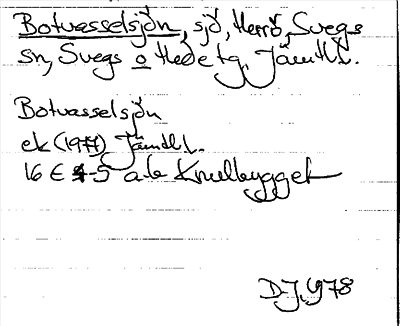 Botvasselsjön, sjö, Herrö, Svegs
sn, Svegs o Hede tg. Jämtl l.
Botvasselsjön
ek (1971) Jämtl l.
16 E 4-5 a-b Knullbygget
DJ, 1978